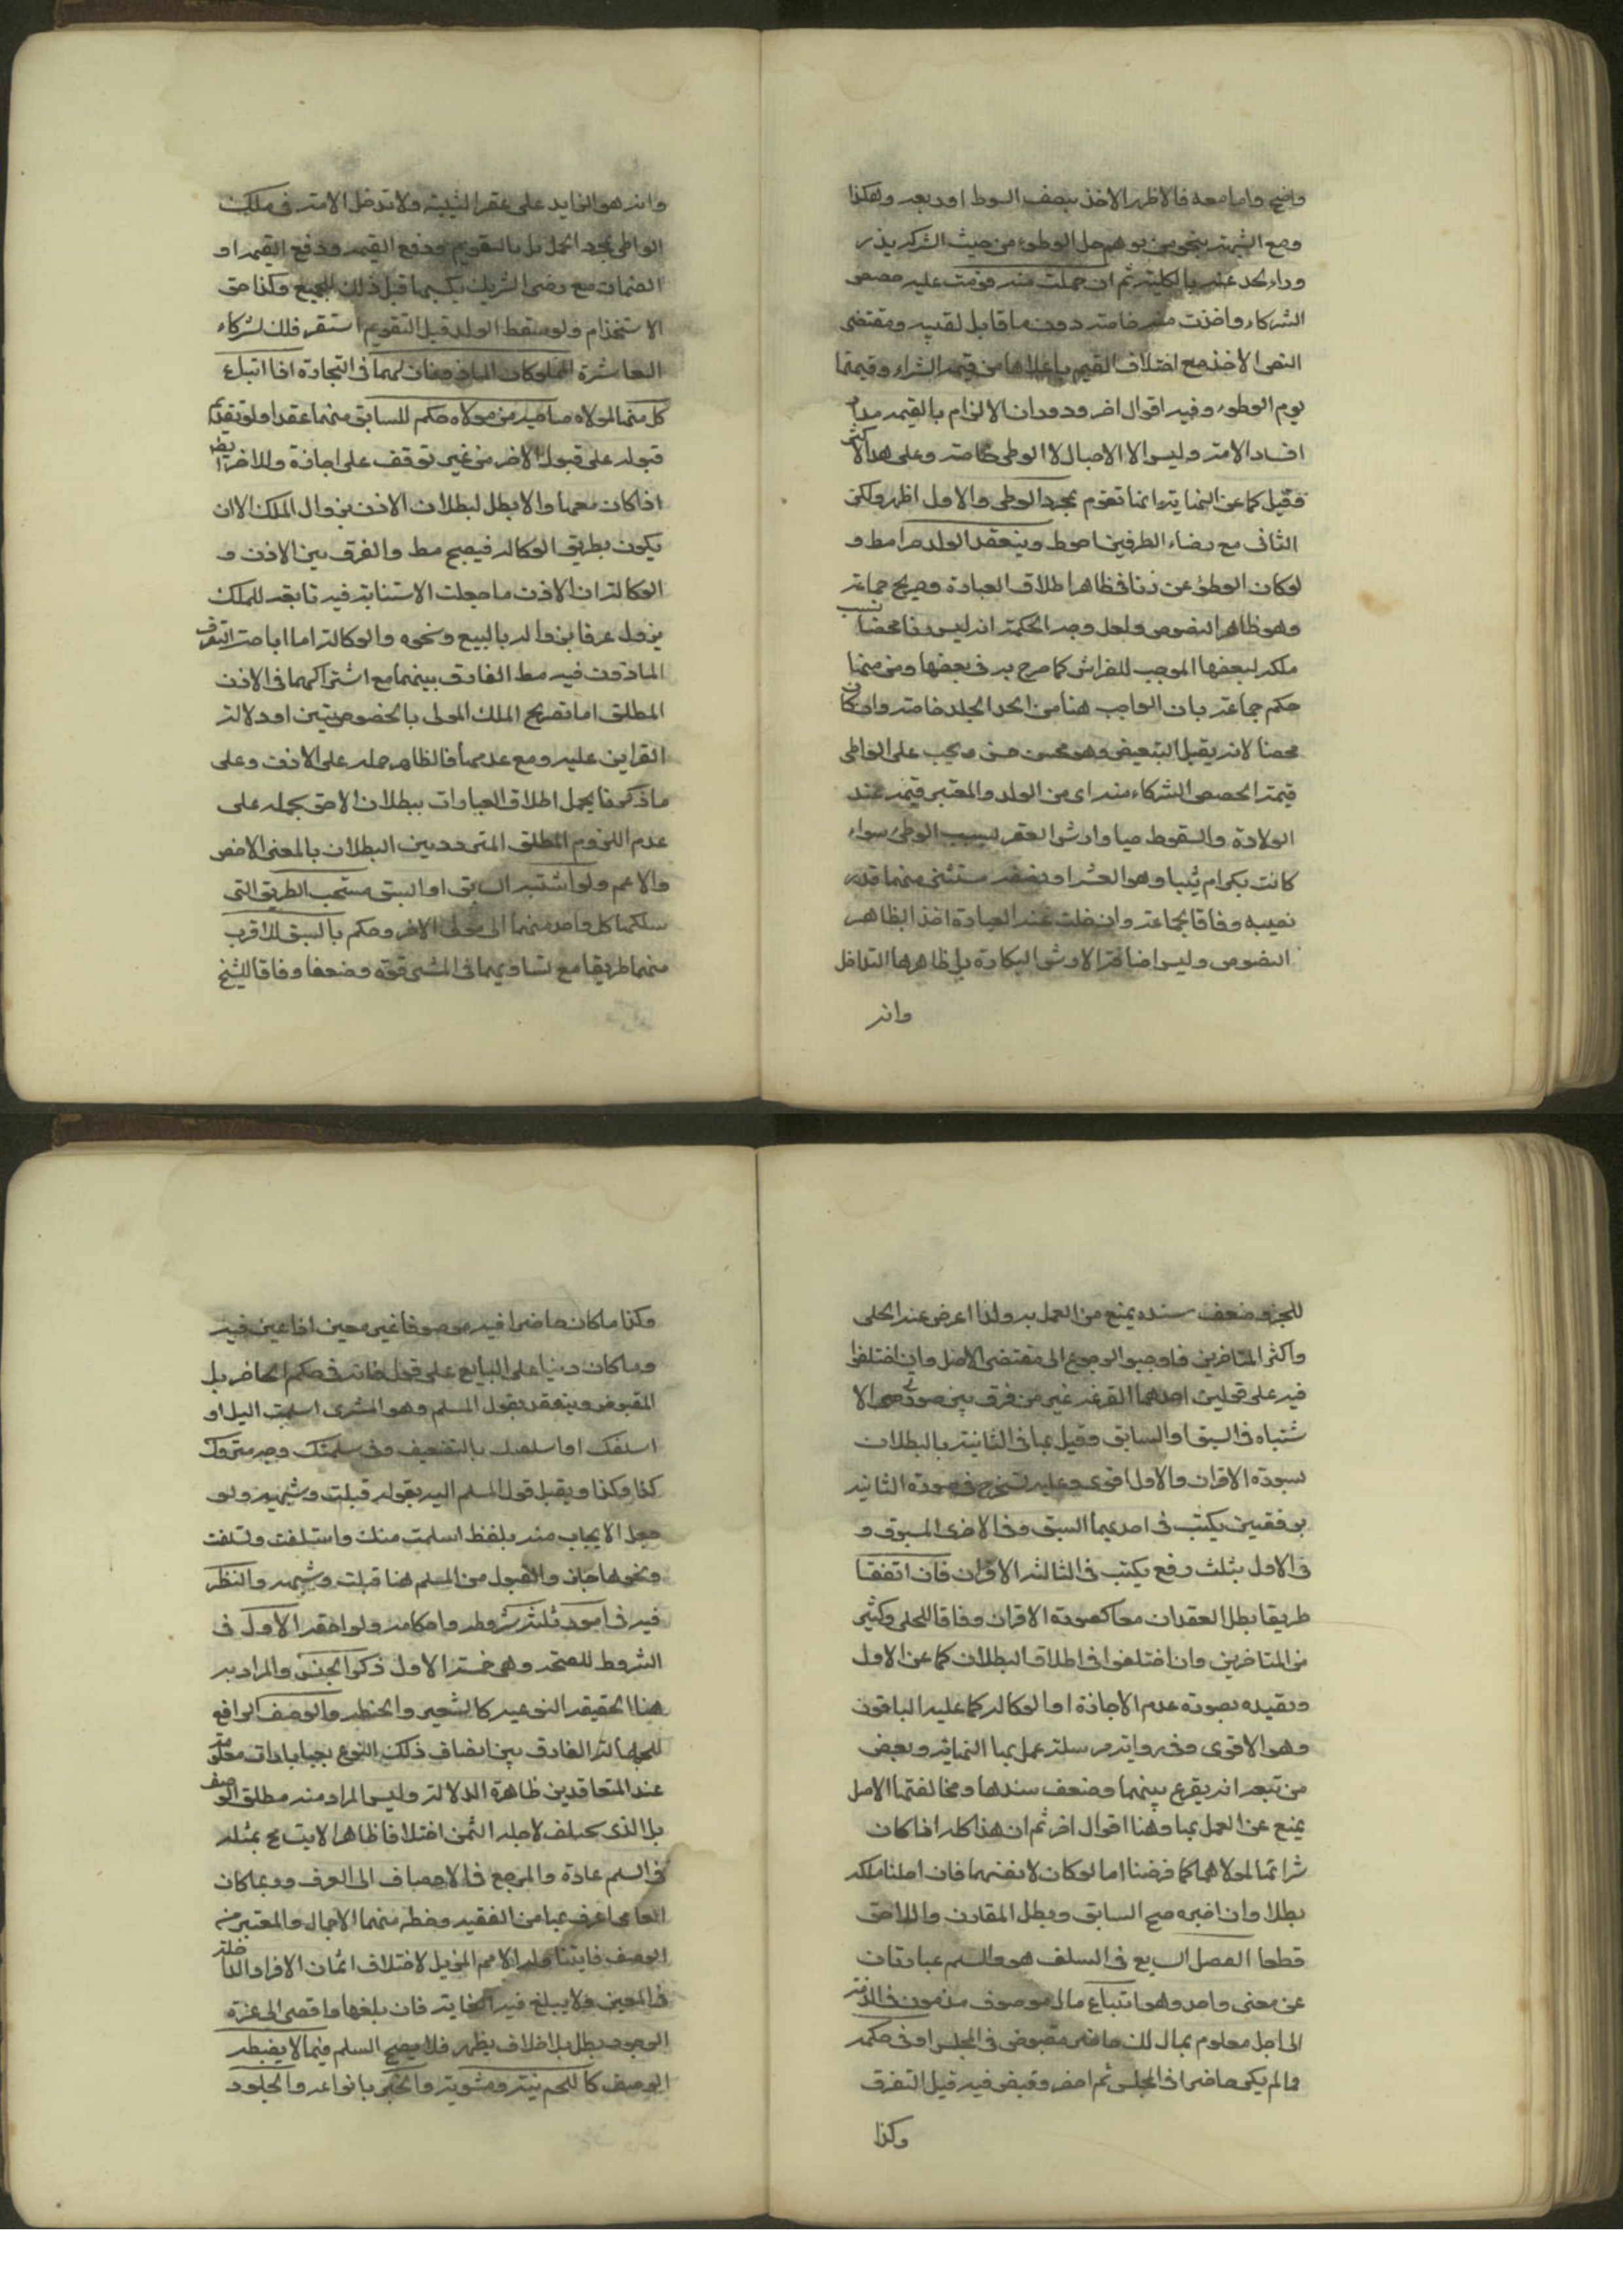 واضح واما معه فالاظهر الاخذ بنصف السوط او ربعه وهكذا
ومع الشبهة بنحو من توهم حل الوطوء من حيث الشركة يذر
وراء لحد عنه بالكلية ثم ان حملت منه قومت عليه حصص
الشركاء واخذت منه خاصة دون ما قابل نصيبه ومقتضى
النص الاخذ مع اختلاف القيم باعلاها من قيمة الشراء وقيمتها
يوم الوطوء وفيه اقوال اخر ودود ان الالزام بالقيمة مدار
افساد الامة وليس الا الاحبال لا الوطى خاصة وعلى هذا الاكثر
وقيل كما عن النهاية انما تقوم بمجرد الوطى والاول اظهر ولكن
الثانى مع رضاء الطرفين احوط وينعقد الولد حرا مط و
لو كان الوطؤ عن زنا فظاهر اطلاق العبادة وصريح جماعة
وهو ظاهر النصوص ولعل وجه الحكمة انه ليس زنا محضا بسبب
ملكه لبعضها الموجب للفراش كما صرح به فى بعضها ومن هنا
حكم جماعة بان الواجب هنا من الحد الجلد خاصة وان كان
محصنا لانه يقبل التبعيض وهو محسن حسن ويجب على الواطى
قيمة الحصص الشركاء منه اى من الولد والمعتبر قيمته عند
الولادة والسقوط حيا وارش العقر بسبب الوطى سواء
كانت بكرا ام ثيبا وهو العشر او نصفه مستثنى منهما قدر
نصيبه وفاقا لجماعة وان خلت عنه العبادة اخذ الظاهر
النصوص وليس اضافة الارش البكارة بل ظاهرها التداخل
وانه
وانه هو الزايد على عقر الثيبة ولا تدخل الامة فى ملك
الواطى بمجرد الحمل بل بالتقويم ودفع القيمة ودفع القيمة او
الضمان مع رضى الشريك بكسبها قبل ذلك للجميع وكذا حق
الاستخدام ولو سقط الولد قبل التقويم استقر ملك الشركاء
العاشرة المملوكان الماذونان لهما فى التجارة اذا ابتاع
كل منهما لمولاه صاحبه من مولاه حكم للسابق منهما عقدا ولو بتقدم
قبوله على قبول الاخر من غير توقف على اجازة وللاخر ايضا
اذا كان معها والا بطل لبطلان الاذن بزوال الملك الا ان
يكون بطريق الوكالة فيصح مط والفرق بين الاذن و
الوكالة ان الاذن ما جعلت الاستنابة فيه تابعة للملك
يزول عرفا بزواله بالبيع ونحوه والوكالة اما اباحة التصرف
الماذون فيه مط الفارق بينهما مع اشتراكهما فى الاذن
المطلق اما تصريح الملك المولى بالخصوصيتين او دلالة
القراين عليه ومع عدمها فالظاهر حمله على الاذن وعلى
ما ذكرنا يحمل اطلاق العبارات ببطلان الاحق بحمله على
عدم اللزوم المطلق المتردد بين البطلان بالمعنى الاخص
والاعم ولو اشتبه السابق او السبق مستحب الطريق التى
سلكها كل واحد منهما الى مولى الاخر وحكم بالسبق للاقرب
منهما طريقا مع تساويهما فى المشى قوة وضعفا وفاقا للشيخ
للخبر وضعف سنده يمنع من العمل به ولذا اعرض عنه الحلى
واكثر المتاخرين فاوجبوا الرجوع الى مقتضى الاصل وان اختلفوا
فيه على قولين احدهما القرعة غير من فرق بين صورتى الا
شتباه فى السبق او السابق وقيل بها فى الثانية بالبطلان
بسورة الاقران والاول اقوى وعليه تستخرج فى صورة الثانية
برقعتين يكتب فى احديهما السبق وفى الاخرى المسبوق و
فى الاول بثلث رقع يكتب فى الثالثة الاقران فان اتفقا
طريقا بطل العقدان معا كصورة الاقران وفاقا للحلى وكثير
من المتاخرين وان اختلفوا فى اطلاق البطلان كما عن الاول
وتقيده بصورة عدم الاجازة او الوكالة كما عليه الباقون
وهو الاقوى وفى رواية مرسلة عمل بها النهاية وبعض
من تبعه انه يقرع بينهما وضعف سندها ومخالفتها الاصل
يمنع عن العمل بها وهنا اقوال اخر ثم ان هذا كله اذا كان
شرائهما لمولاهما كما فرضنا اما لو كان لانفسهما فان احلنا ملكه
بطلا وان اخبره صح السابق وبطل المقارن واللاحق
قطعا الفصل السابع فى السلف هو والسلم عبارتان
عن معنى واحد وهو ابتياع مال موصوف مذمون فى الذمة
الى اجل معلوم بمال لك حاضر مقبوض فى المجلس او فى حكمه
مالم يكن حاضرا فى المجلس ثم احضر وقبض فيه قبل التفرق
وكذا
وكذا ما كان حاضرا فيه موصوفا غير معين اذا عين فيه
وما كان دينا على البايع على قول فانه فى حكم الحاضر بل
المقبوض وينعقد بقول المسلم وهو المشترى اسلمت اليك او
اسلفتك او اسلفتك بالتضعيف وفى سلمتك وجه متروك
كذا وكذا ويقبل قول المسلم اليه بقوله قبلت وشبهه ولو
جعل الايجاب منه بلفظ اسلمت منك واستلفت وتلفت
ونحوها جاز والقبول من المسلم هنا قبلت وشبهه والنظر
فيه فى امور ثلثة شروطه واحكامه ولواحقه الاول فى
الشروط للصحة وهى خمسة الاول ذكر الجنس والمراد به
هنا الحقيقة النوعية كالشعير والحنطة والوصف الرافع
للجهالة الفارق بين اصناف ذلك النوع بعبارات معلومة
عند المتعاقدين ظاهرة الدلالة وليس المراد منه مطلق الوصف
بل الذى يختلف لاجله الثمن اختلافا ظاهرا لا يتسامح بمثله
فى السلم عادة والمرجع فى الاوصاف الى العرف وربما كان
العامى اعرف بها من الفقيه وحظه منهما الاجمال والمعتبر من
الوصف فايتناوله الاسم المزيل لاختلاف اثمان الافراد الداخلة
فى المعين ولا يبلغ فيه الغاية فان بلغها وافضى الى عزة
الوجود بطل بلا خلاف يظهر فلا يصح السلم فيما لا يضبطه
الوصف كاللحم نيته ومشويه والخبز بانواعه والجلود